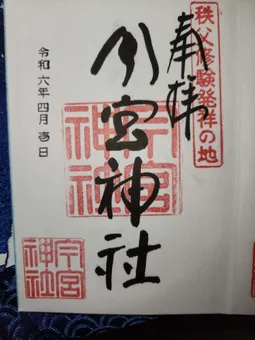 秩父修験発祥の地
奉拝
今宮神社
令和六年四月壱日
今宮
神社
今宮
神社